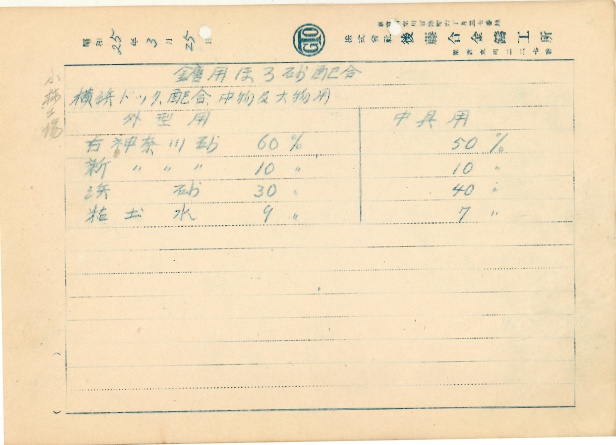 昭和25年3月25日
GTO
株式会社 後藤合金鋳工所
小柿工場
鋳用ほろ砂配合
横浜ドック、配合、中物及大物用
外型用 中具用
古神奈川砂 60% 50%
新 〃 〃 〃 10〃 10〃
浜 砂 30〃 40〃
粘土水 9〃 7〃